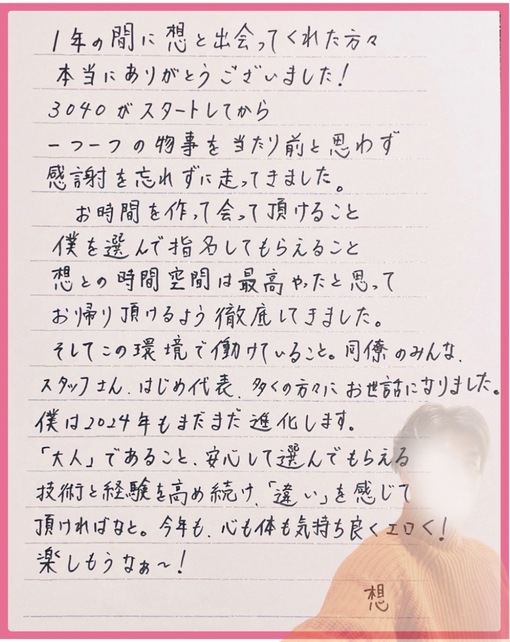 1年の間に想と出会ってくれた方々
本当にありがとうございました!
3040がスタートしてから
一つ一つの物事を当たり前と思わず
感謝を忘れずに走ってきました。
お時間を作って会って頂けること
僕を選んで指名してもらえること
想との時間空間は最高やったと思って
お帰り頂けるよう徹底してきました。
そしてこの環境で働けていること。同僚のみんな、
スタッフさん、はじめ代表、多くの方々にお世話になりました。
僕は2024年もまだまだ進化します。
「大人」であること、安心して選んでもらえる
技術と経験を高め続け、「違い」を感じて
頂ければなと。今年も、心も体も気持ち良くエロく!
楽しもうなぁ〜!
想